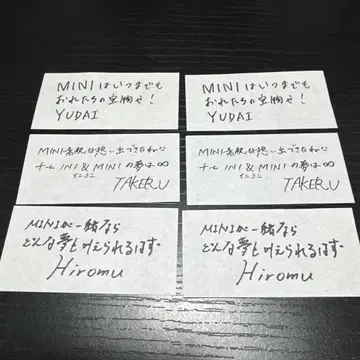 MINIはいつまでも
おれたちの宝物や!
YUDAI
MINIはいつまでも
おれたちの宝物や!
YUDAI
MINI素敵な想い出できたかな
チーム INI & MINI の夢は∞
イニミニ
TAKERU
MINI素敵な想い出できたかな
チーム INI & MINI の夢は∞
イニミニ
TAKERU
MINIが一緒なら
どんな夢も叶えられるはず
Hiromu
MINIが一緒なら
どんな夢も叶えられるはず
Hiromu